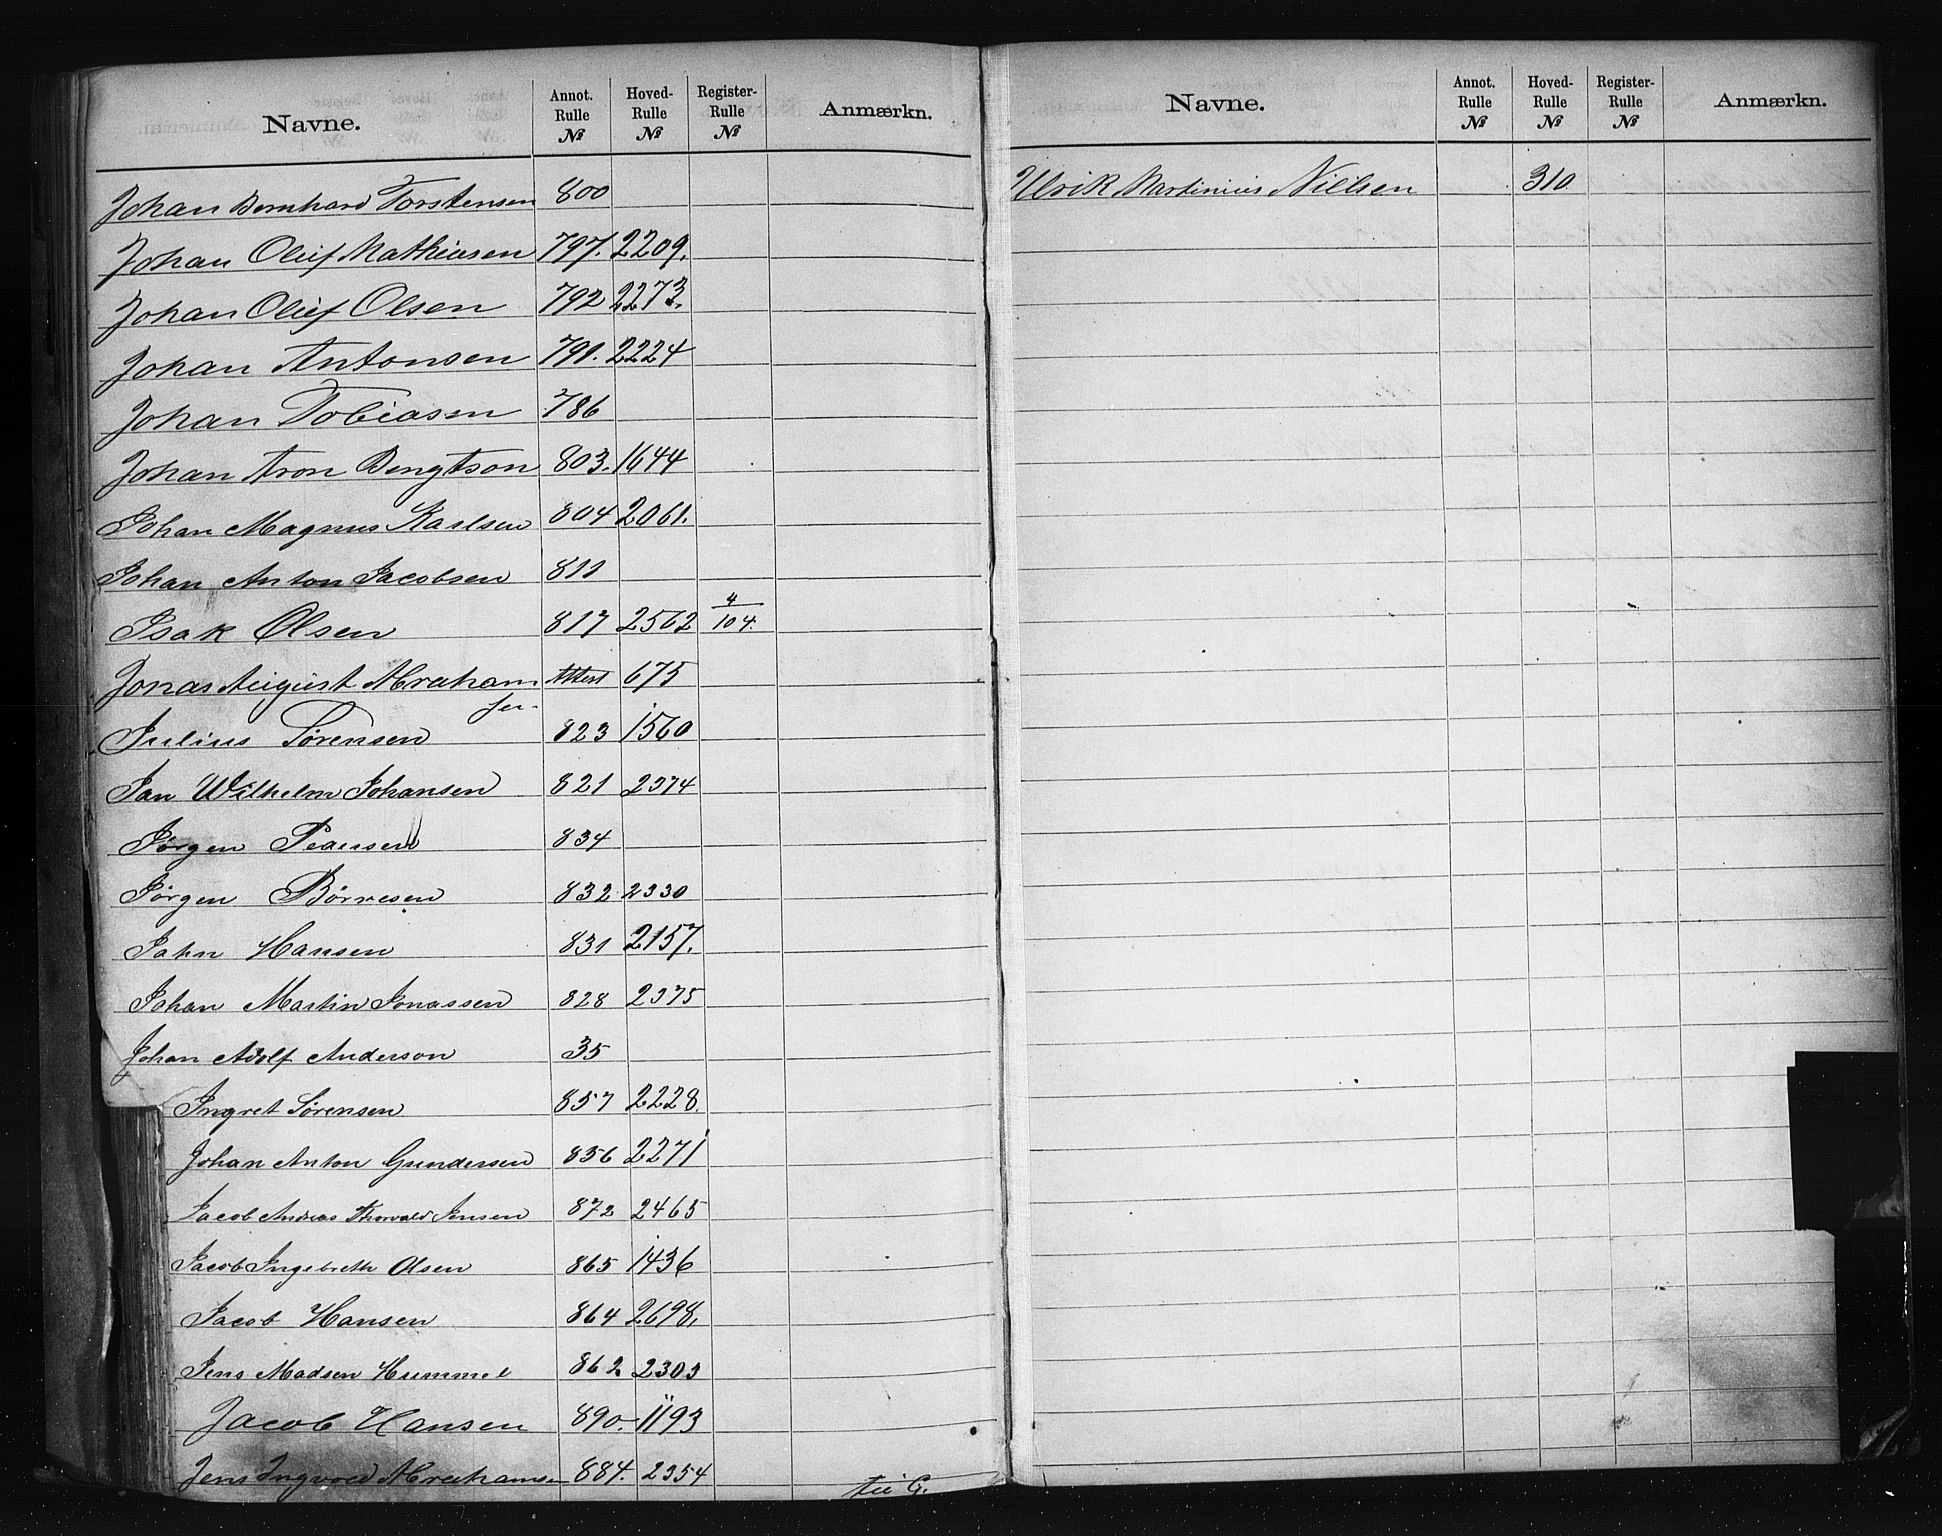 Navne. Annot. Rulle № Hoved-Rulle № Register-Rulle № Anmærkn.
Johan Bernhard Torstensen 800
Johan Oluf Mathiasen 797. 2209.
Johan Oluf Olsen 792 2273.
Johan Antonsen 791. 2224
Johan Tobiasen 786
Johan Aron Bengtson 803. 1644
Johan Magnus Karlsen 804 2061.
Johan Anton Jacobsen 811
Isak Olsen 817 2562 4/104.
Jonas August Abraham 675
sen
Julius Sørensen 823 1560
Jan Wilhelm Johansen 821 2374
Jørgen Pedersen 834
Jørgen Børresen 832 2330
John Hansen 831 2157.
Johan Martin Jonassen 828 2375
Johan Adolf Anderson 35
Ingret Sørensen 857 2228.
Johan Anton Gundersen 856 2271
Jacob Andreas Thorvald Jensen 872 2465
Jacob Ingebreth Olsen 865 1436
Jacob Hansen 864 2698.
Jens Madsen Hummel 862 2303
Jacob Hansen 890. 1193
Jens Ingvold Abrahamsen 884. 2354
til G.
Navne. Annot. Rulle № Hoved-Rulle № Register-Rulle № Anmærkn.
Ulrik Martinius Nielsen 310